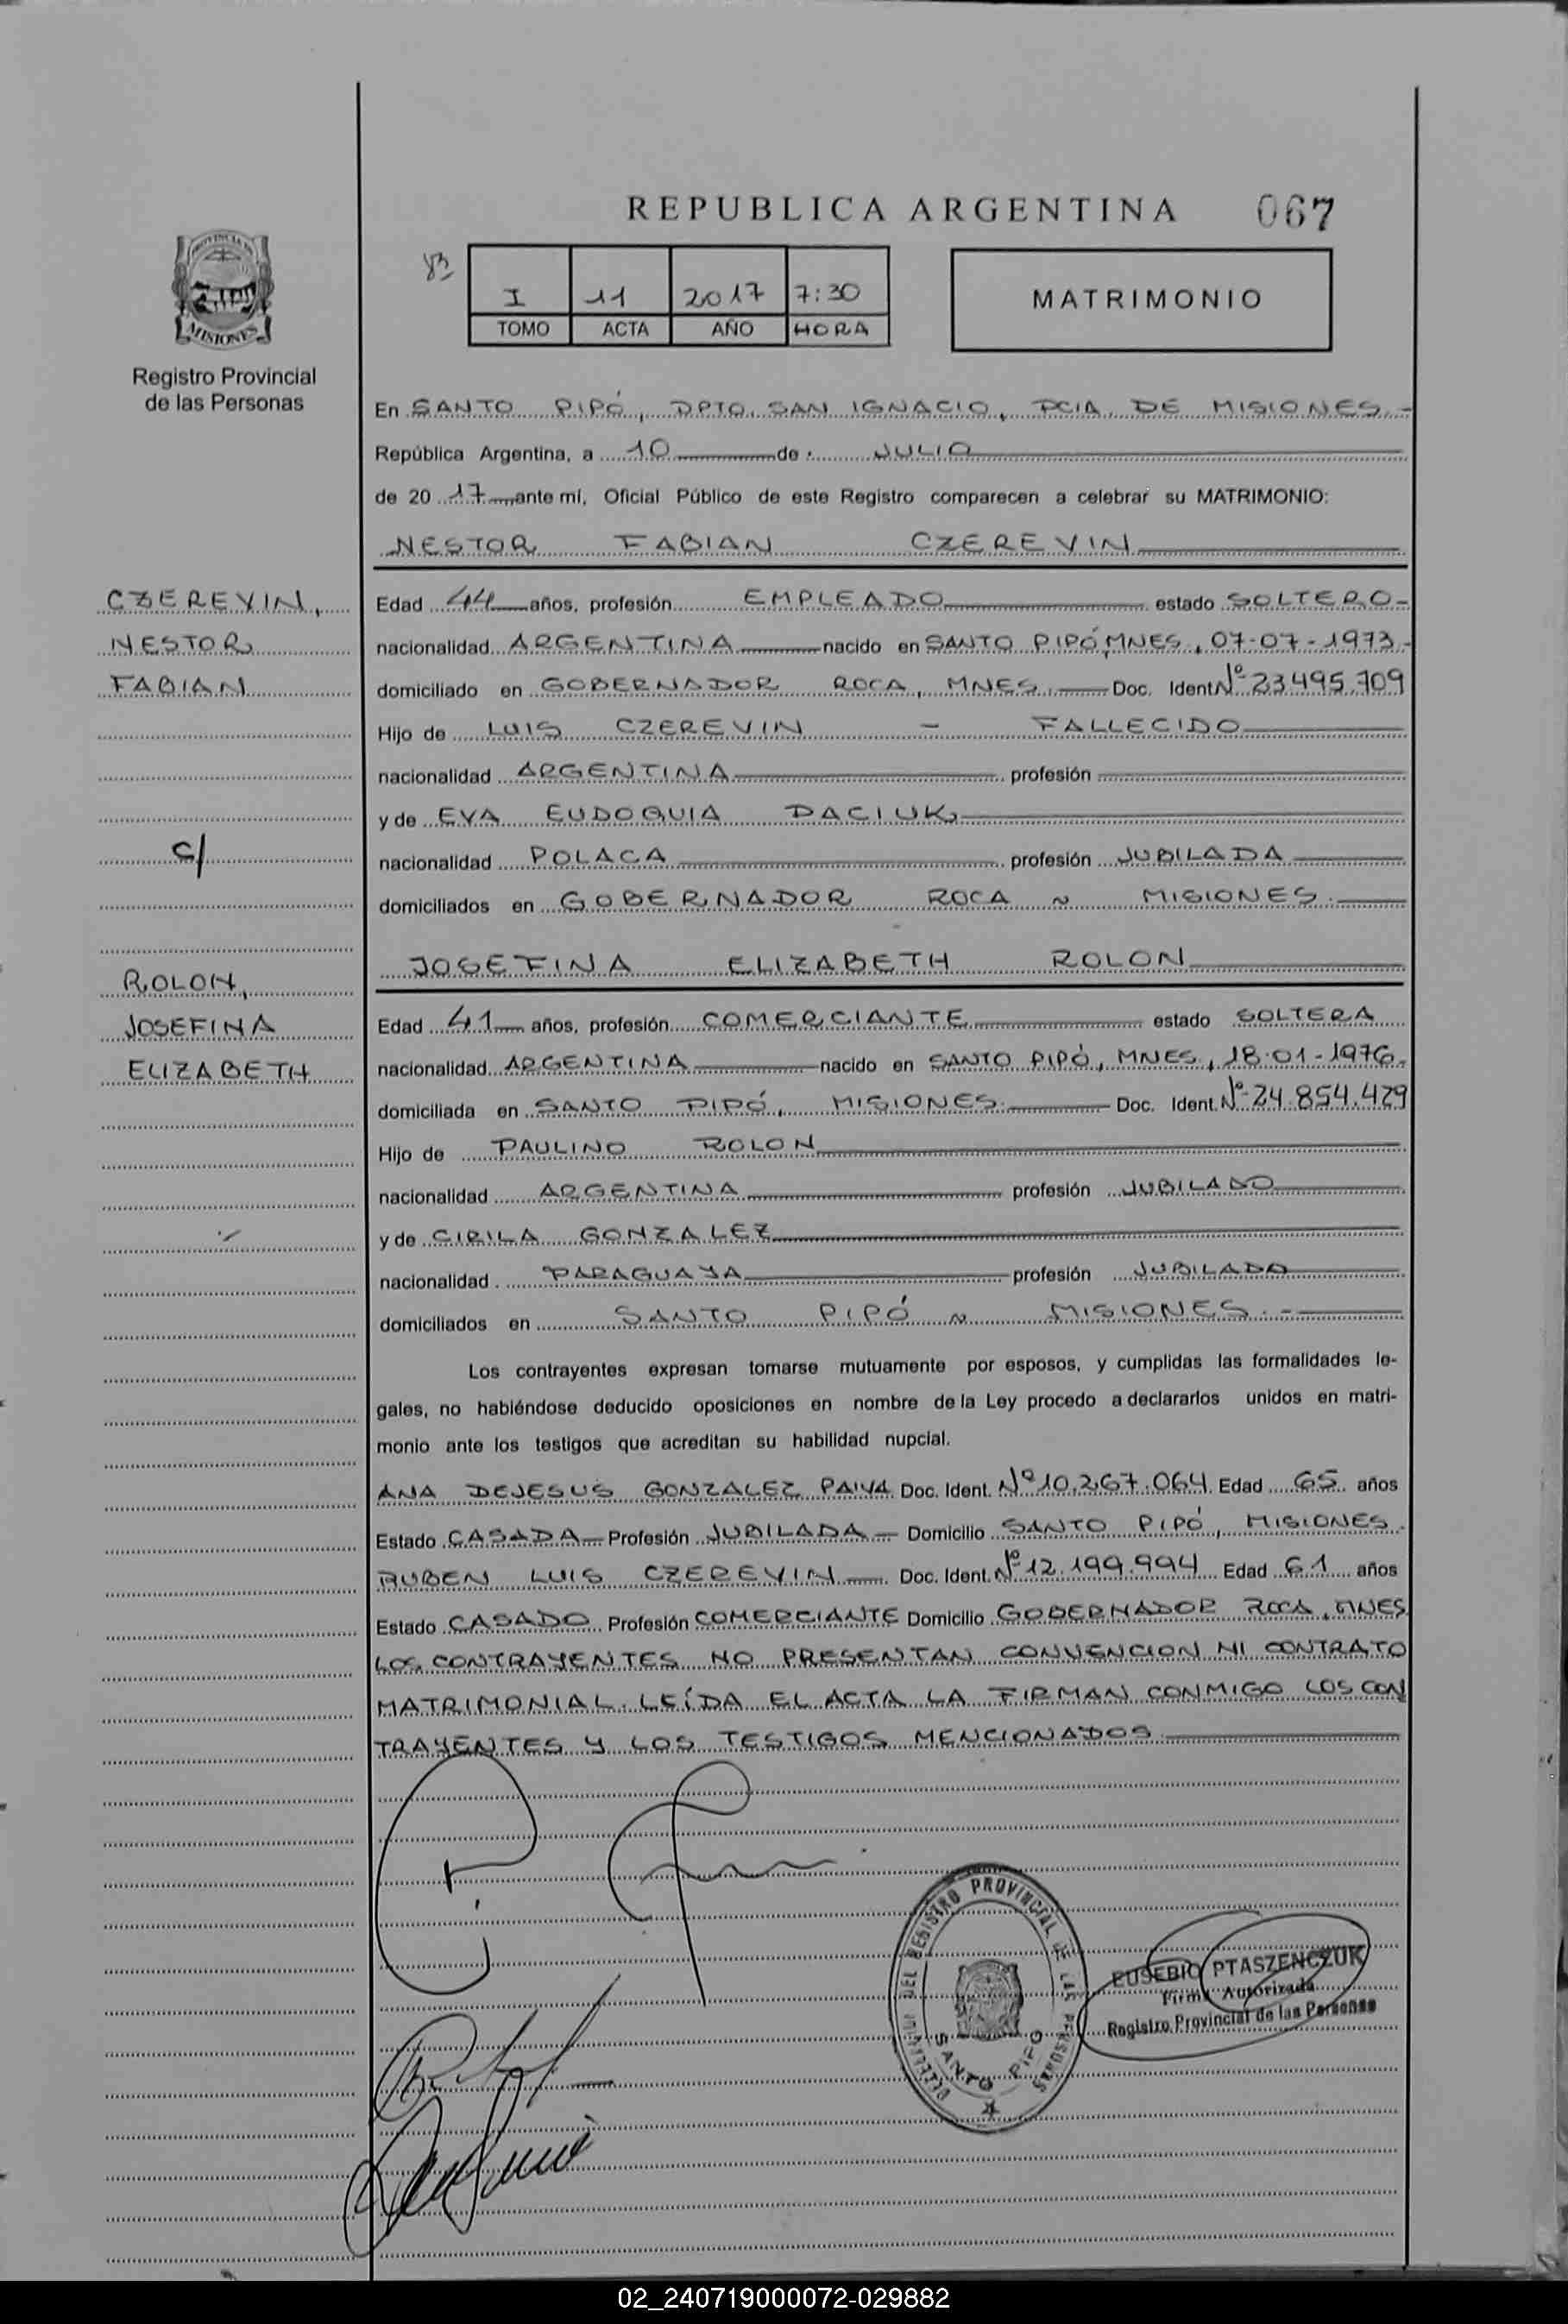 REPUBLICA ARGENTINA 067
83
I 11 2017 7:30
TOMO ACTA AÑO HORA
MATRIMONIO
PROVINCIA DE
MISIONES
Registro Provincial
de las Personas
En SANTO PIPÓ, DPTO. SAN IGNACIO, PCIA. DE MISIONES.-
República Argentina, a 10 de JULIO
de 2017 ante mí, Oficial Público de este Registro comparecen a celebrar su MATRIMONIO:
NESTOR FABIAN CZEREVIN
CZEREVIN,
NESTOR
FABIAN
Edad 44 años, profesión EMPLEADO estado SOLTERO-
nacionalidad ARGENTINA nacido en SANTO PIPÓ, MNES, 07-07-1973-
domiciliado en GOBERNADOR ROCA, MNES. Doc. Ident Nº 23.495.709
Hijo de LUIS CZEREVIN - FALLECIDO
nacionalidad ARGENTINA profesión
y de EVA EUDOQUIA DACIUK
c/
nacionalidad POLACA profesión JUBILADA
domiciliados en GOBERNADOR ROCA ~ MISIONES.
JOSEFINA ELIZABETH ROLON
ROLON,
JOSEFINA
ELIZABETH
Edad 41 años, profesión COMERCIANTE estado SOLTERA
nacionalidad ARGENTINA nacido en SANTO PIPÓ, MNES, 18-01-1976-
domiciliada en SANTO PIPÓ, MISIONES. Doc. Ident. Nº 24.854.429
Hijo de PAULINO ROLON
nacionalidad ARGENTINA profesión JUBILADO
y de CIRILA GONZALEZ
nacionalidad PARAGUAYA profesión JUBILADA
domiciliados en SANTO PIPÓ ~ MISIONES.-
Los contrayentes expresan tomarse mutuamente por esposos, y cumplidas las formalidades le-
gales, no habiéndose deducido oposiciones en nombre de la Ley procedo a declararlos unidos en matri-
monio ante los testigos que acreditan su habilidad nupcial.
ANA DEJESUS GONZALEZ PAIVA Doc. Ident. Nº 10.267.064 Edad 65 años
Estado CASADA Profesión JUBILADA Domicilio SANTO PIPÓ, MISIONES.
RUBEN LUIS CZEREVIN Doc. Ident. Nº 12.199.994 Edad 61 años
Estado CASADO Profesión COMERCIANTE Domicilio GOBERNADOR ROCA, MNES
LOS CONTRAYENTES NO PRESENTAN CONVENCION NI CONTRATO
MATRIMONIAL. LEÍDA EL ACTA LA FIRMAN CONMIGO LOS CON
TRAYENTES Y LOS TESTIGOS MENCIONADOS.
DEL REGISTRO PROVINCIAL DE LAS PERSONAS
SANTO PIPO
EUSEBIO PTASZENCZUK
Firma Autorizada
Registro Provincial de las Personas
02_240719000072-029882